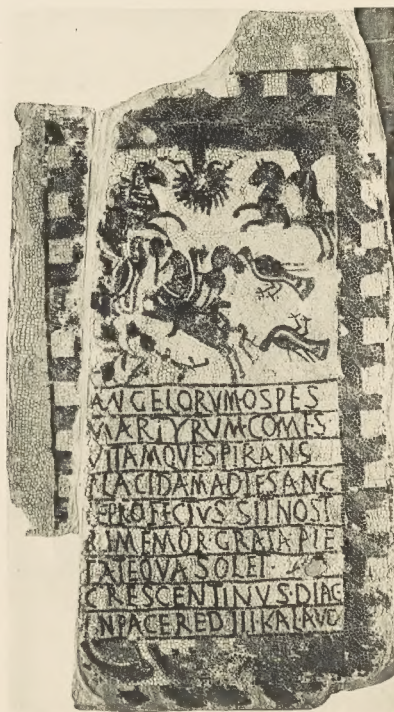 ANGELORVMOSPES
MARTYRVM·COMES
VITAMQVESPIRANS
PLACIDAMADIESANC
EPROFECIVS SIINOST
RIMEMOR·GRATA PIE
TATEQVA SOLEI·
CRESCENTINVS·DIAC
INPACERED IIIKALAVG